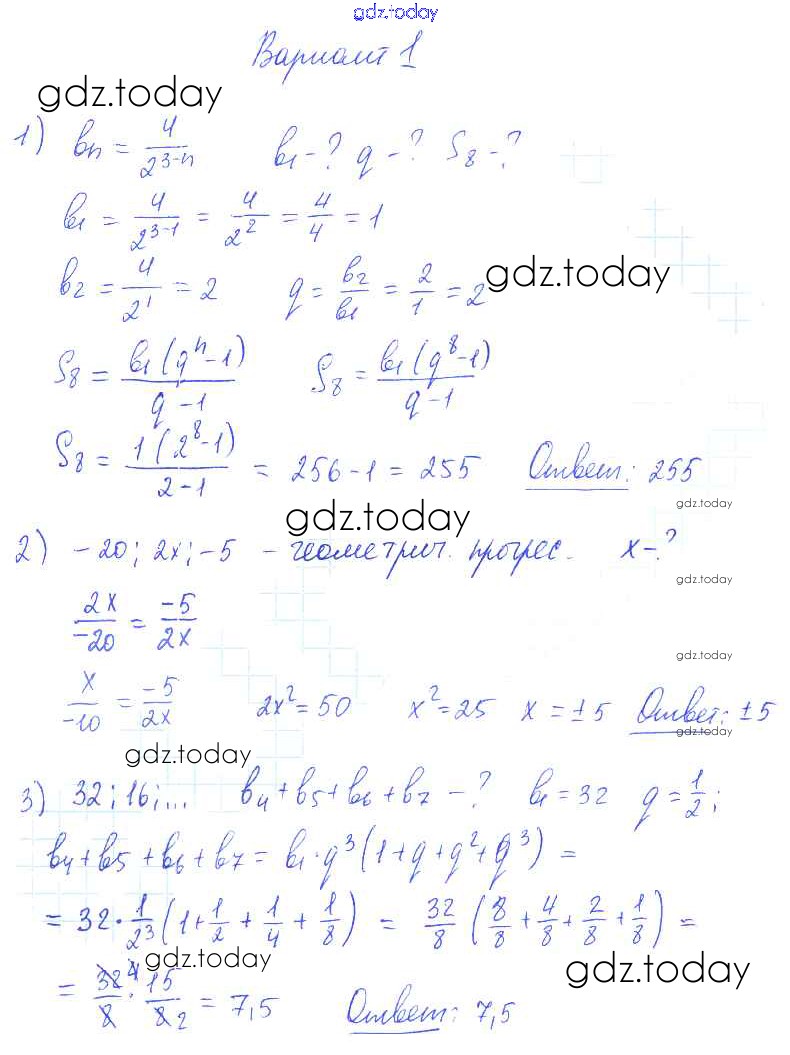 gdz.today
Вариант 1
gdz.today
1) bₙ = 4/2³⁻ⁿ b₁ - ? q - ? S₈ - ?
b₁ = 4/2³⁻¹ = 4/2² = 4/4 = 1
b₂ = 4/2¹ = 2 q = b₂/b₁ = 2/1 = 2 gdz.today
S₈ = b₁(qⁿ-1)/(q-1) S₈ = b₁(q⁸-1)/(q-1)
S₈ = 1(2⁸-1)/(2-1) = 256-1 = 255 Ответ: 255
gdz.today
gdz.today
2) -20; 2x; -5 - геометрич. прогрес. x - ?
gdz.today
2x/-20 = -5/2x
gdz.today
x/-10 = -5/2x 2x² = 50 x² = 25 x = ±5 Ответ: ±5
gdz.today
gdz.today
3) 32; 16; ... b₄+b₅+b₆+b₇ - ? b₁ = 32 q = 1/2;
b₄+b₅+b₆+b₇ = b₁·q³(1+q+q²+q³) =
= 32·1/2³(1+1/2+1/4+1/8) = 32/8(8/8+4/8+2/8+1/8) =
gdz.today
gdz.today
= 32⁴/8·15/8₂ = 7,5 Ответ: 7,5